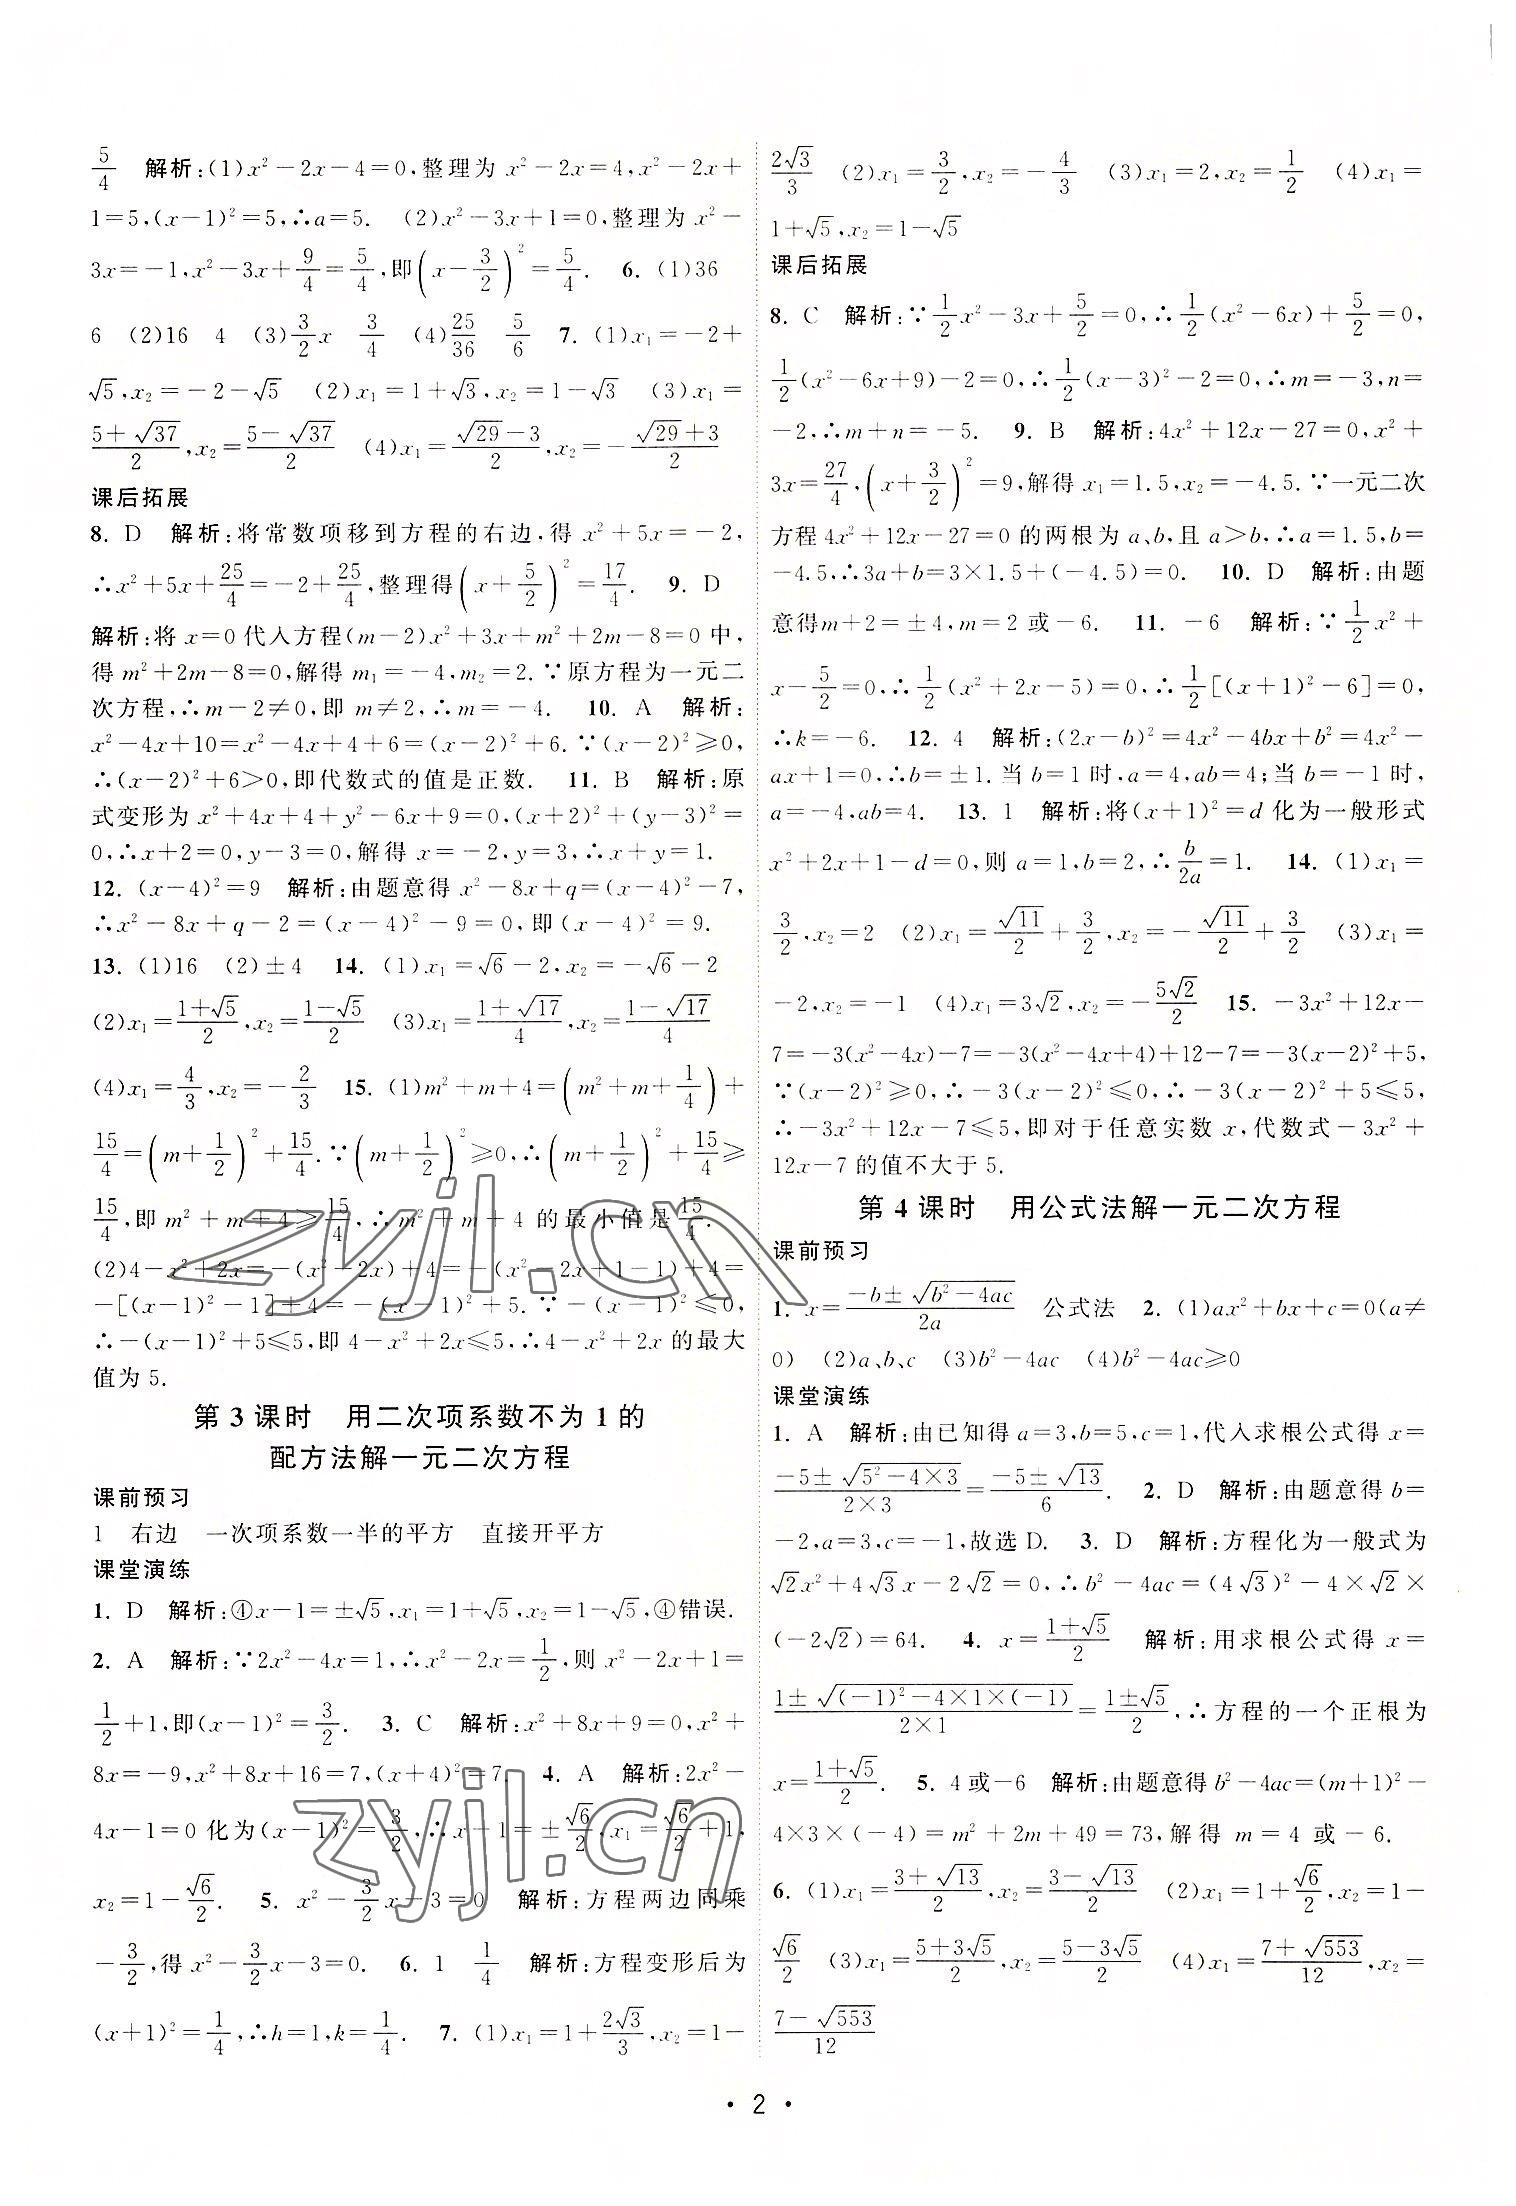 5/4　解析:(1)x²－2x－4＝0,整理为 x²－2x＝4,x²－2x＋
1＝5,(x－1)²＝5,∴a＝5.　(2)x²－3x＋1＝0,整理为 x²－
3x＝－1,x²－3x＋9/4＝5/4,即(x－3/2)²＝5/4.　6. (1)36
6　(2)16　4　(3)3/2x　3/4　(4)25/36　5/6　7. (1)x₁＝－2＋
√5,x₂＝－2－√5　(2)x₁＝1＋√3,x₂＝1－√3　(3)x₁＝
(5＋√37)/2,x₂＝(5－√37)/2　(4)x₁＝(√29－3)/2,x₂＝－(√29＋3)/2
课后拓展
8. D　解析:将常数项移到方程的右边,得 x²＋5x＝－2,
∴x²＋5x＋25/4＝－2＋25/4,整理得(x＋5/2)²＝17/4.　9. D
解析:将 x＝0 代入方程(m－2)x²＋3x＋m²＋2m－8＝0 中,
得 m²＋2m－8＝0,解得 m₁＝－4,m₂＝2.∵原方程为一元二
次方程,∴m－2≠0,即 m≠2,∴m＝－4.　10. A　解析:
x²－4x＋10＝x²－4x＋4＋6＝(x－2)²＋6.∵(x－2)²≥0,
∴(x－2)²＋6>0,即代数式的值是正数.　11. B　解析:原
式变形为 x²＋4x＋4＋y²－6x＋9＝0,(x＋2)²＋(y－3)²＝
0,∴x＋2＝0,y－3＝0,解得 x＝－2,y＝3,∴x＋y＝1.
12. (x－4)²＝9　解析:由题意得 x²－8x＋q＝(x－4)²－7,
∴x²－8x＋q－2＝(x－4)²－9＝0,即(x－4)²＝9.
13. (1)16　(2)±4　14. (1)x₁＝√6－2,x₂＝－√6－2
(2)x₁＝(1＋√5)/2,x₂＝(1－√5)/2　(3)x₁＝(1＋√17)/4,x₂＝(1－√17)/4
(4)x₁＝4/3,x₂＝－2/3　15. (1)m²＋m＋4＝(m²＋m＋1/4)＋
15/4＝(m＋1/2)²＋15/4.∵(m＋1/2)²≥0,∴(m＋1/2)²＋15/4≥
15/4,即 m²＋m＋4≥15/4,∴m²＋m＋4 的最小值是15/4.
(2)4－x²＋2x＝－(x²－2x)＋4＝－(x²－2x＋1－1)＋4＝
－[(x－1)²－1]＋4＝－(x－1)²＋5.∵－(x－1)²≤0,
∴－(x－1)²＋5≤5,即 4－x²＋2x≤5,∴4－x²＋2x 的最大
值为 5.
第 3 课时　用二次项系数不为 1 的
配方法解一元二次方程
课前预习
1　右边　一次项系数一半的平方　直接开平方
课堂演练
1. D　解析:④x－1＝±√5,x₁＝1＋√5,x₂＝1－√5,④错误.
2. A　解析:∵2x²－4x＝1,∴x²－2x＝1/2,则 x²－2x＋1＝
1/2＋1,即(x－1)²＝3/2.　3. C　解析:x²＋8x＋9＝0,x²＋
8x＝－9,x²＋8x＋16＝7,(x＋4)²＝7.　4. A　解析:2x²－
4x－1＝0 化为(x－1)²＝3/2,∴x－1＝±√6/2,x₁＝√6/2＋1,
x₂＝1－√6/2.　5. x²－3/2x－3＝0　解析:方程两边同乘
－3/2,得 x²－3/2x－3＝0.　6. 1　1/4　解析:方程变形后为
(x＋1)²＝1/4,∴h＝1,k＝1/4.　7. (1)x₁＝1＋2√3/3,x₂＝1－
2√3/3　(2)x₁＝3/2,x₂＝－4/3　(3)x₁＝2,x₂＝1/2　(4)x₁＝
1＋√5,x₂＝1－√5
课后拓展
8. C　解析:∵1/2x²－3x＋5/2＝0,∴1/2(x²－6x)＋5/2＝0,
1/2(x²－6x＋9)－2＝0,∴1/2(x－3)²－2＝0,∴m＝－3,n＝
－2,∴m＋n＝－5.　9. B　解析:4x²＋12x－27＝0,x²＋
3x＝27/4,(x＋3/2)²＝9,解得 x₁＝1.5,x₂＝－4.5.∵一元二次
方程 4x²＋12x－27＝0 的两根为 a、b,且 a>b,∴a＝1.5,b＝
－4.5,∴3a＋b＝3×1.5＋(－4.5)＝0.　10. D　解析:由题
意得m＋2＝±4,m＝2 或－6.　11. －6　解析:∵1/2x²＋
x－5/2＝0,∴1/2(x²＋2x－5)＝0,∴1/2[(x＋1)²－6]＝0,
∴k＝－6.　12. 4　解析:(2x－b)²＝4x²－4bx＋b²＝4x²－
ax＋1＝0,∴b＝±1.当 b＝1 时,a＝4,ab＝4;当 b＝－1 时,
a＝－4,ab＝4.　13. 1　解析:将(x＋1)²＝d 化为一般形式
x²＋2x＋1－d＝0,则 a＝1,b＝2,∴b/2a＝1.　14. (1)x₁＝
3/2,x₂＝2　(2)x₁＝√11/2＋3/2,x₂＝－√11/2＋3/2　(3)x₁＝
－2,x₂＝－1　(4)x₁＝3√2,x₂＝－5√2/2　15. －3x²＋12x－
7＝－3(x²－4x)－7＝－3(x²－4x＋4)＋12－7＝－3(x－2)²＋5,
∵(x－2)²≥0,∴－3(x－2)²≤0,∴－3(x－2)²＋5≤5,
∴－3x²＋12x－7≤5,即对于任意实数 x,代数式－3x²＋
12x－7 的值不大于 5.
第 4 课时　用公式法解一元二次方程
课前预习
1. x＝(－b±√(b²－4ac))/2a　公式法　2. (1)ax²＋bx＋c＝0(a≠
0)　(2)a、b、c　(3)b²－4ac　(4)b²－4ac≥0
课堂演练
1. A　解析:由已知得 a＝3,b＝5,c＝1,代入求根公式得 x＝
(－5±√(5²－4×3))/(2×3)＝(－5±√13)/6.　2. D　解析:由题意得 b＝
－2,a＝3,c＝－1,故选 D.　3. D　解析:方程化为一般式为
√2x²＋4√3x－2√2＝0,∴b²－4ac＝(4√3)²－4×√2×
(－2√2)＝64.　4. x＝(1＋√5)/2　解析:用求根公式得 x＝
(1±√((－1)²－4×1×(－1)))/(2×1)＝(1±√5)/2,∴方程的一个正根为
x＝(1＋√5)/2.　5. 4 或－6　解析:由题意得 b²－4ac＝(m＋1)²－
4×3×(－4)＝m²＋2m＋49＝73,解得 m＝4 或－6.
6. (1)x₁＝(3＋√13)/2,x₂＝(3－√13)/2　(2)x₁＝1＋√6/2,x₂＝1－
√6/2　(3)x₁＝(5＋3√5)/2,x₂＝(5－3√5)/2　(4)x₁＝(7＋√553)/12,x₂＝
(7－√553)/12
• 2 •
zyjl.cn
zyjl.cn